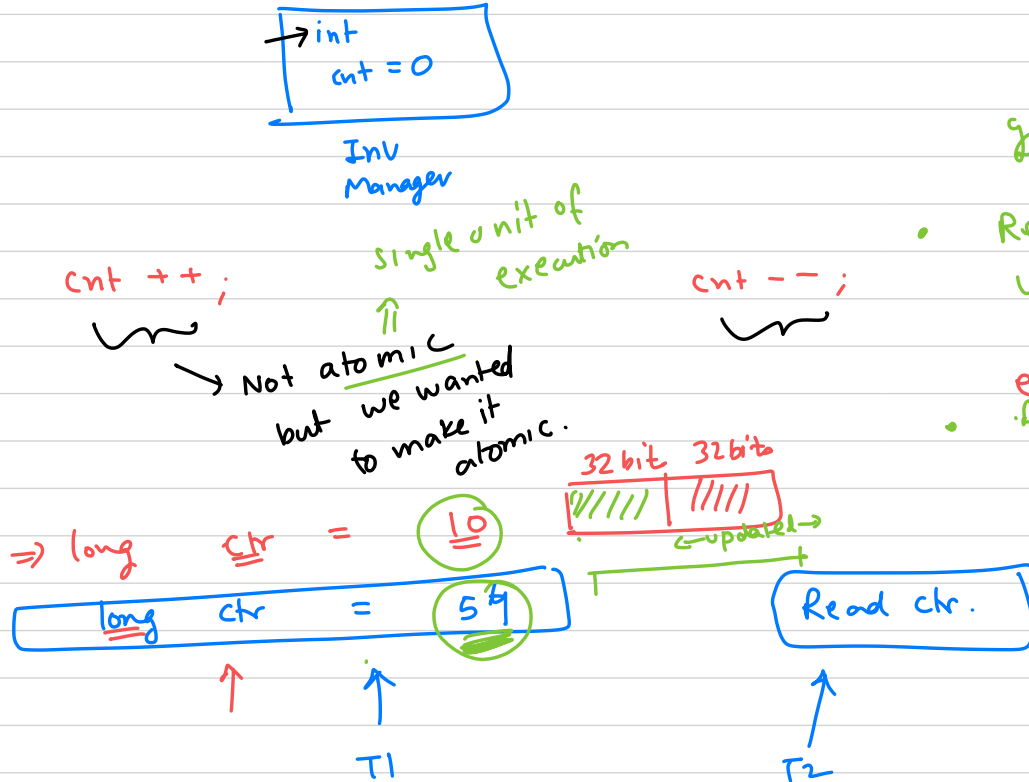 → int
cnt = 0
Inv
Manager
single unit of
execution
cnt ++ ;
cnt -- ;
Not atomic
but we wanted
to make it
atomic.
32 bit 32 bits
← updated →
⇒ long ctr = 10
long ctr = 54
Read ctr.
T1
T2